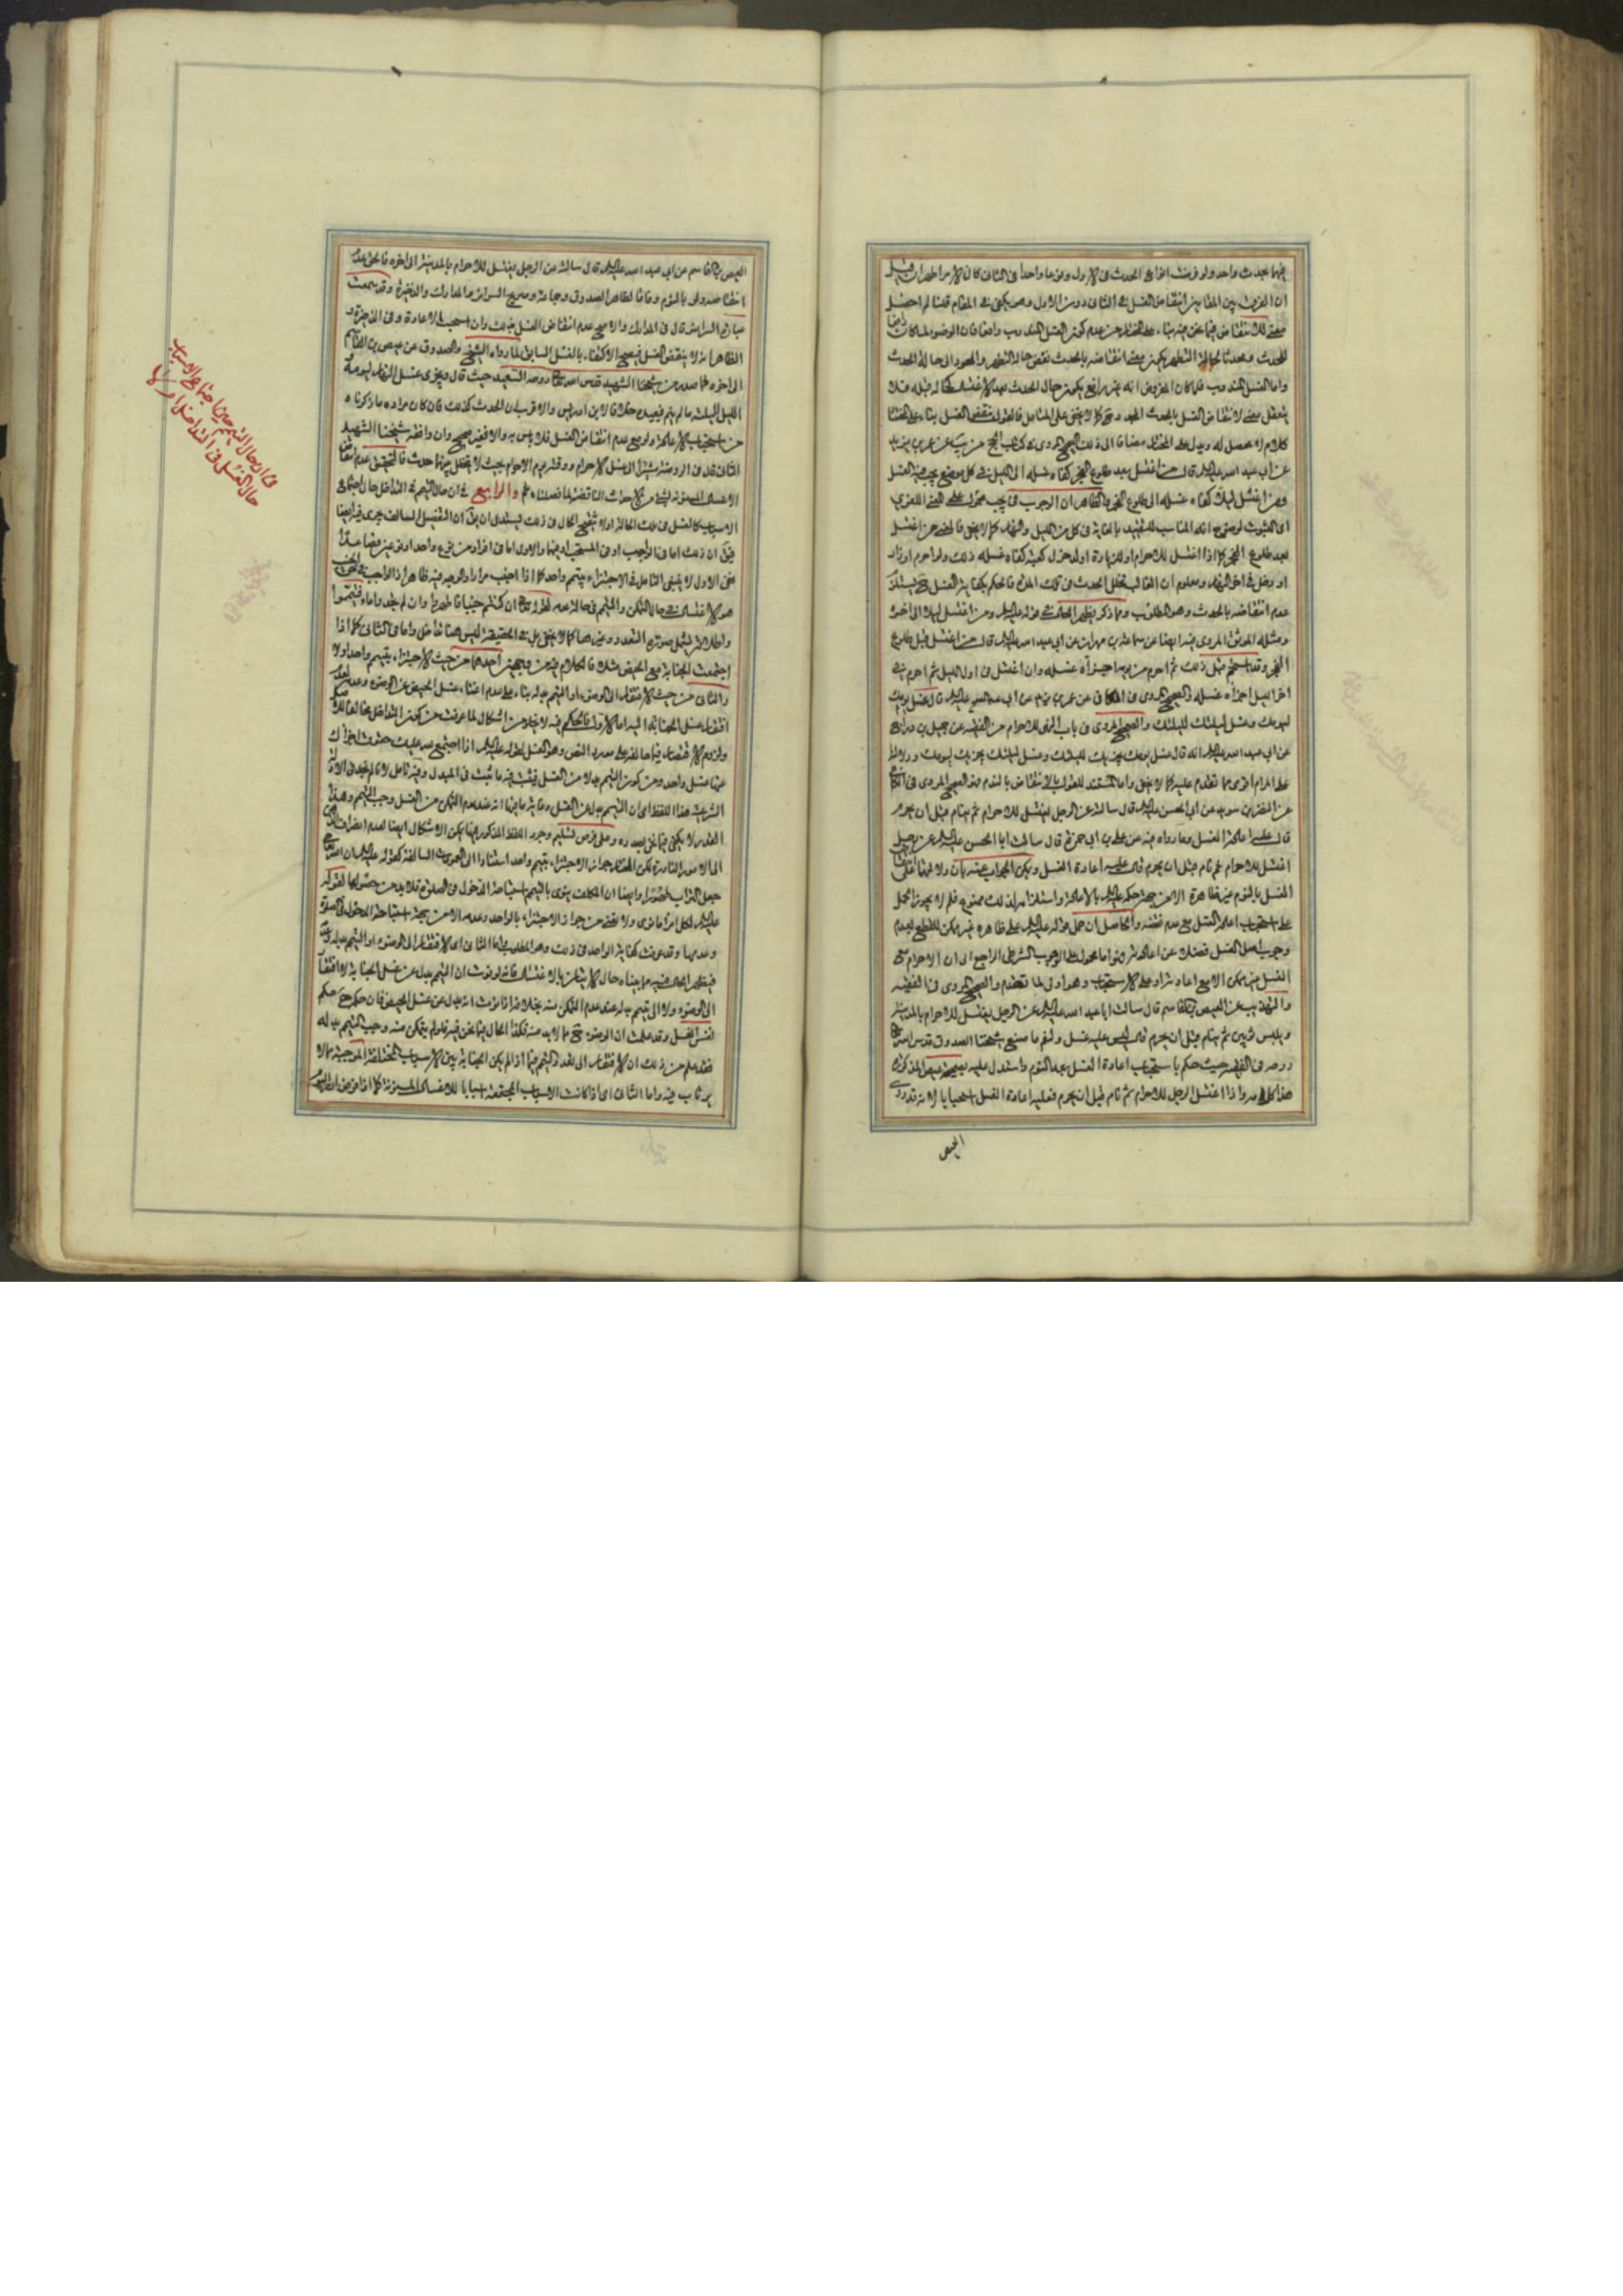 فيهما بحدث واحد ولو فرضت انواع الحدث فى الاول ونوعا واحدا فى الثانى كان الامر اظهر ان قيل
ان الفرق بين المقامين انتقاض الغسل فى الثانى دون الاول وهو يكفى فى المقام قلنا لم احصل
معنى للانتقاض فيما نحن فيه بناء على المختار من عدم كون الغسل المندوب رافعا فان الوضوء لما كان رافعا
للحدث ومحدثا لحالة التطهر يكون معنى انتقاضه بالحدث نقض حالة التطهر والعود الى حالة الحدث
واما الغسل المندوب فلما كان المفروض انه غير رافع يكون حال الحدث بعد الاغتسال كحاله قبله فلا
يتعقل معنى لانتقاض الغسل بالحدث المجدد وح كما لا يخفى على المتأمل فالقول بنقض الغسل بناء على المختار
كلام لا محصل له ويدل على المختار مضافا الى ذلك الصحيح المروى فى كتاب الحج عن عمر بن يزيد
عن ابى عبد الله عليه السلام قال من اغتسل بعد طلوع الفجر كفاه غسله الى الليل فى كل موضع يجب فيه الغسل
ومن اغتسل ليلا كفاه غسله الى طلوع الفجر والظاهر ان الوجوب فى يجب محمول على المعنى اللغوى
اى الثبوت لوضوح انه المناسب للتقييد بالغاية فى كل من الليل والنهار كما لا يخفى فالمعنى من اغتسل
بعد طلوع الفجر كما اذا اغتسل للاحرام او للزيارة او لدخول كعبة كفاه غسله ذلك ولو احرم او زار
او دخل فى اخر النهار ومعلوم ان الغالب تخلل الحدث فى تلك المدة فالحكم بكفاية الغسل ح يستلزم
عدم انتقاضه بالحدث وهو المطلوب ومما ذكر يظهر الحال فى قوله عليه السلام ومن اغتسل ليلا الى اخره
ومثله الموثق المروى فيه ايضا عن سماعة بن مهران عن ابى عبد الله عليه السلام قال من اغتسل قبل طلوع
الفجر وقد استحم قبل ذلك ثم احرم من يومه اجزأه غسله وان اغتسل فى اول الليل ثم احرم فى
اخر الليل اجزأه غسله والصحيح المروى فى الكافى عن عمر بن يزيد عن ابى عبد الله عليه السلام قال غسل يومك
ليومك وغسل ليلتك لليلتك والصحيح المروى فى باب المواقيت للاحرام من الفقيه عن جميل بن دراج
عن ابى عبد الله عليه السلام انه قال غسل يومك يجزيك لليلتك وغسل ليلتك يجزيك ليومك ودلالة
على المرام اقوى مما تقدم عليه كما لا يخفى واما المستند للقول بالانتقاض بالنوم فهو الصحيح المروى فى الكافى
عن النضر بن سويد عن ابى الحسن عليه السلام قال سألته عن الرجل يغتسل للاحرام ثم ينام قبل ان يحرم
قال عليه اعادة الغسل وما رواه فيه عن على بن ابى حمزة قال سألت ابا الحسن عليه السلام عن رجل
اغتسل للاحرام ثم نام قبل ان يحرم قال عليه اعادة الغسل ويمكن الجواب عنه بان دلالتهما على نقض
الغسل بالنوم غير ظاهرة الا من جهة حكمه عليه السلام بالاعادة واستلزامه لذلك ممنوع فلم لا يجوز الحمل
على استحباب اعادة الغسل مع عدم نقضه والحاصل ان حمل قوله عليه السلام على ظاهره غير ممكن للقطع بعدم
وجوب اصل الغسل فضلا عن اعادته فهو اما محمول على الوجوب الشرطى الراجع الى ان الاحرام مع
الغسل غير ممكن الا مع اعادته او على الاستحباب وهو اولى لما تقدم والصحيح المروى فى الفقيه
والتهذيب عن العيص بن القاسم قال سألت ابا عبد الله عليه السلام عن الرجل يغتسل للاحرام بالمدينة
ويلبس ثوبين ثم ينام قبل ان يحرم قال ليس عليه غسل ونعم ما صنع شيخنا الصدوق قدس الله
روحه فى الفقيه حيث حكم باستحباب اعادة الغسل بعد النوم واستدل عليه بصحيحة عيص المذكورة
هذا كلامه واذا اغتسل الرجل للاحرام ثم نام قبل ان يحرم فعليه اعادة الغسل استحبابا لانه قد روى
العيص
العيص بن القاسم عن ابى عبد الله عليه السلام قال سألته عن الرجل يغتسل للاحرام بالمدينة الى اخره فالحق عدم
انتقاضه ولو بالنوم وفاقا لظاهر الصدوق وجماعة وصريح السرائر والمدارك والذخيرة وقد سمعت
عبارة السرائر قال فى المدارك والاصح عدم انتقاض الغسل بذلك وان استحب الاعادة وفى الذخيرة و
الظاهر انه لا ينتقض الغسل فيصح الاكتفاء بالغسل السابق لما رواه الشيخ والصدوق عن عيص بن القاسم
الى اخره لما صدر من شيخنا الشهيد قدس الله تعالى روحه السعيد حيث قال ويجزى غسل النهار ليومه
الليل لليلته ما لم ينم فيعيده خلافا لابن ادريس والاقرب ان الحدث كذلك فان كان مراده ما ذكرناه
من استحباب الاعادة ولو مع عدم انتقاض الغسل فلا بأس به والا فغير صحيح وان وافقه شيخنا الشهيد
الثانى قال فى الروضة
الاغسال المسنونة لشئ من الاحداث الناقضة لما فصلناه ثم والرابع فى ان حال التيمم فى التداخل حال اجتماع
الاسباب كالغسل فى تلك الحالة اولا تنقيح الحال فى ذلك يستدعى ان يق ان التفصيل السالف يجرى فيه ايضا
فيق ان ذلك اما فى الواجب او فى المستحب او فيهما والاول اما فى افراد من نوع واحد او نوعين فصاعدا
ففى الاول لا ينبغى التأمل فى الاجتزاء بتيمم واحد كما اذا اجنب مرارا والوجه فيه ظاهر اذ الواجب
هو الاغتسال فى حال التمكن والتيمم فى حالة عدمه لقوله تعالى ان كنتم جنبا فاطهروا وان لم تجدوا ماء فتيمموا
واطلاقه يشمل صورة التعدد وغيرها كما لا يخفى بل فى الحقيقة ليس هنا تداخل واما فى الثانى كما اذا
اجتمعت الجنابة مع الحيض مثلا فالكلام فيه من جهتين احدهما من حيث الاجتزاء بتيمم واحد اولا
والثانى من حيث الافتقار الى الوضوء او التيمم بدله بناء على عدم اغناء غسل الحيض عن الوضوء وعدم
افتقار غسل الجنابة اليه اما الاول فالحكم فيه لا يخلو من اشكال لما عرفت من كون التداخل مخالفا للاصل
ولزوم الاقتصار فيما خالفه على مورد النص وهو الغسل لقوله عليه السلام اذا اجتمع لله عليك حقوق اجزأك
عنها غسل واحد ومن كون التيمم بدلا من الغسل فيثبت فيه ما ثبت فى المبدل وفيه تأمل لانا لم نجد فى الادلة
الشرعية هذا اللفظ اى ان التيمم بدل من الغسل وغاية ما فيها انه عند عدم التمكن من الغسل وجب التيمم وهذا
القدر لا يكفى فيما نحن بصدده وعلى فرض تسليم وجود اللفظ المذكور فيها يمكن الاشكال ايضا لعدم انصراف
الى الامور النادرة لكن المختار جواز الاجتزاء بتيمم واحد استنادا الى العمومات السالفة كقوله عليه السلام ان الله
جعل التراب طهورا وايضا ان المكلف ينوى بالتيمم استباحة الدخول فى الصلوة فلا بد من حصولها لقوله
عليه السلام لكل امرئ ما نوى ولا نعنى من جواز الاجتزاء بالواحد وعدمه الا من جهة استباحة الدخول فى الصلوة
وعدمها وقد عرفت كفاية الواحد فى ذلك وهو المطلوب واما الثانى اى الافتقار الى الوضوء او التيمم بدله
فيظهر الحال فيه مراجعا وحال الاتيان بالاغتسال فانه لو نوى ان التيمم بدل عن غسل الجنابة لا افتقار
الى الوضوء ولا الى تيمم بدله عند عدم التمكن منه بخلاف ما اذا نوى انه بدل عن غسل الحيض فان حكمه ح حكم
نفس الغسل وقد علمت ان الوضوء ح مما لا بد منه فكذا الحال فيما نحن فيه فلو لم يتمكن منه وجب التيمم بدله
فقد علم من ذلك ان الافتقار الى تعدد التيمم فيما اذا لم يكن الجنابة بين الاسباب المختلفة الموجبة مما لا
يرتاب فيه واما الثانى اى اذا كانت الاسباب المجتمعة اسبابا للاغسال المسنونة كما اذا فرض ان
فى ان حال التيمم حين اجتماع الاسباب
حال الغسل فى التداخل ام لا